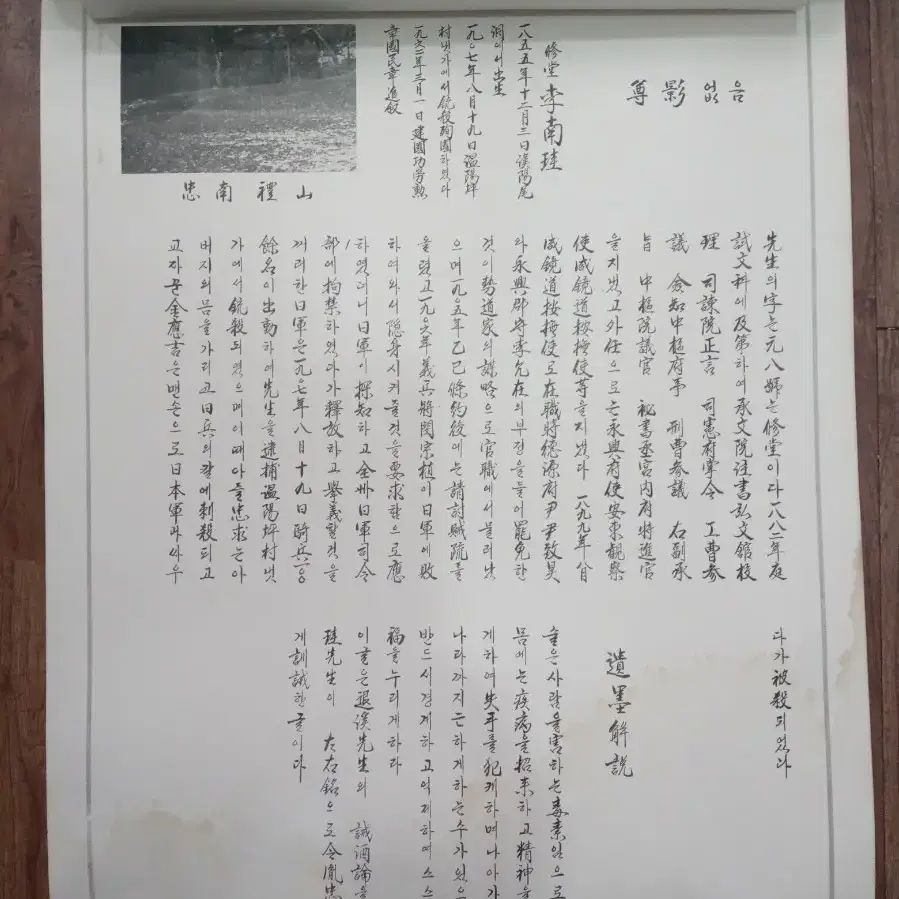 尊影없음
修堂 李南珪
一八五五年十二月三日漢陽尾
洞에서出生
一九〇七年八月十九日溫陽坪
村냇가에서銃殺殉國하였다
一九六二年三月一日建國功勞勳
章國民章追敍
忠南禮山
先生의字는元八號는修堂이다一八八二年庭
試文科에及第하여承文院注書弘文館校
理 司諫院正言 司憲府掌令 工曹參
議 僉知中樞府事 刑曹參議 右副承
旨 中樞院議官 秘書丞宮内府特進官
을지냈고外任으로는永興府使安東觀察
使咸鏡道按撫使等을지냈다 一八九九年
咸鏡道按撫使로在職時德源府尹尹致昊
와永興郡守李允在의부정을들어罷免한
것이勢道家의謀略으로官職에서물러났
으며一九〇五年乙巳條約後에는請討賊疏를
올렸고一九〇六年義兵將閔宗植이日軍에敗
하여와서隱身시켜줄것을要求함으로應
하였더니日軍이探知하고公州日軍司令
部에拘禁하였다가釋放하고擧義할것을
꺼려한日軍은一九〇七年八月十九日騎兵百
餘名이出動하여先生을逮捕溫陽坪村냇
가에서銃殺되였으며이때아들忠求는아
버지의몸을가리고日兵의칼에刺殺되고
교자꾼金應吉은맨손으로日本軍과싸우
다가被殺되었다
遺墨解說
술은사람을害하는毒素임으로
몸에는疾病을招來하고精神을
게하여失手를犯케하며나아가
나라까지亡하게하는수가있으
반드시경계하고억제하여스스
福을누리게하라
이글은退溪先生의 誡酒論을
珪先生이 左右銘으로令胤忠
게訓誡한글이다